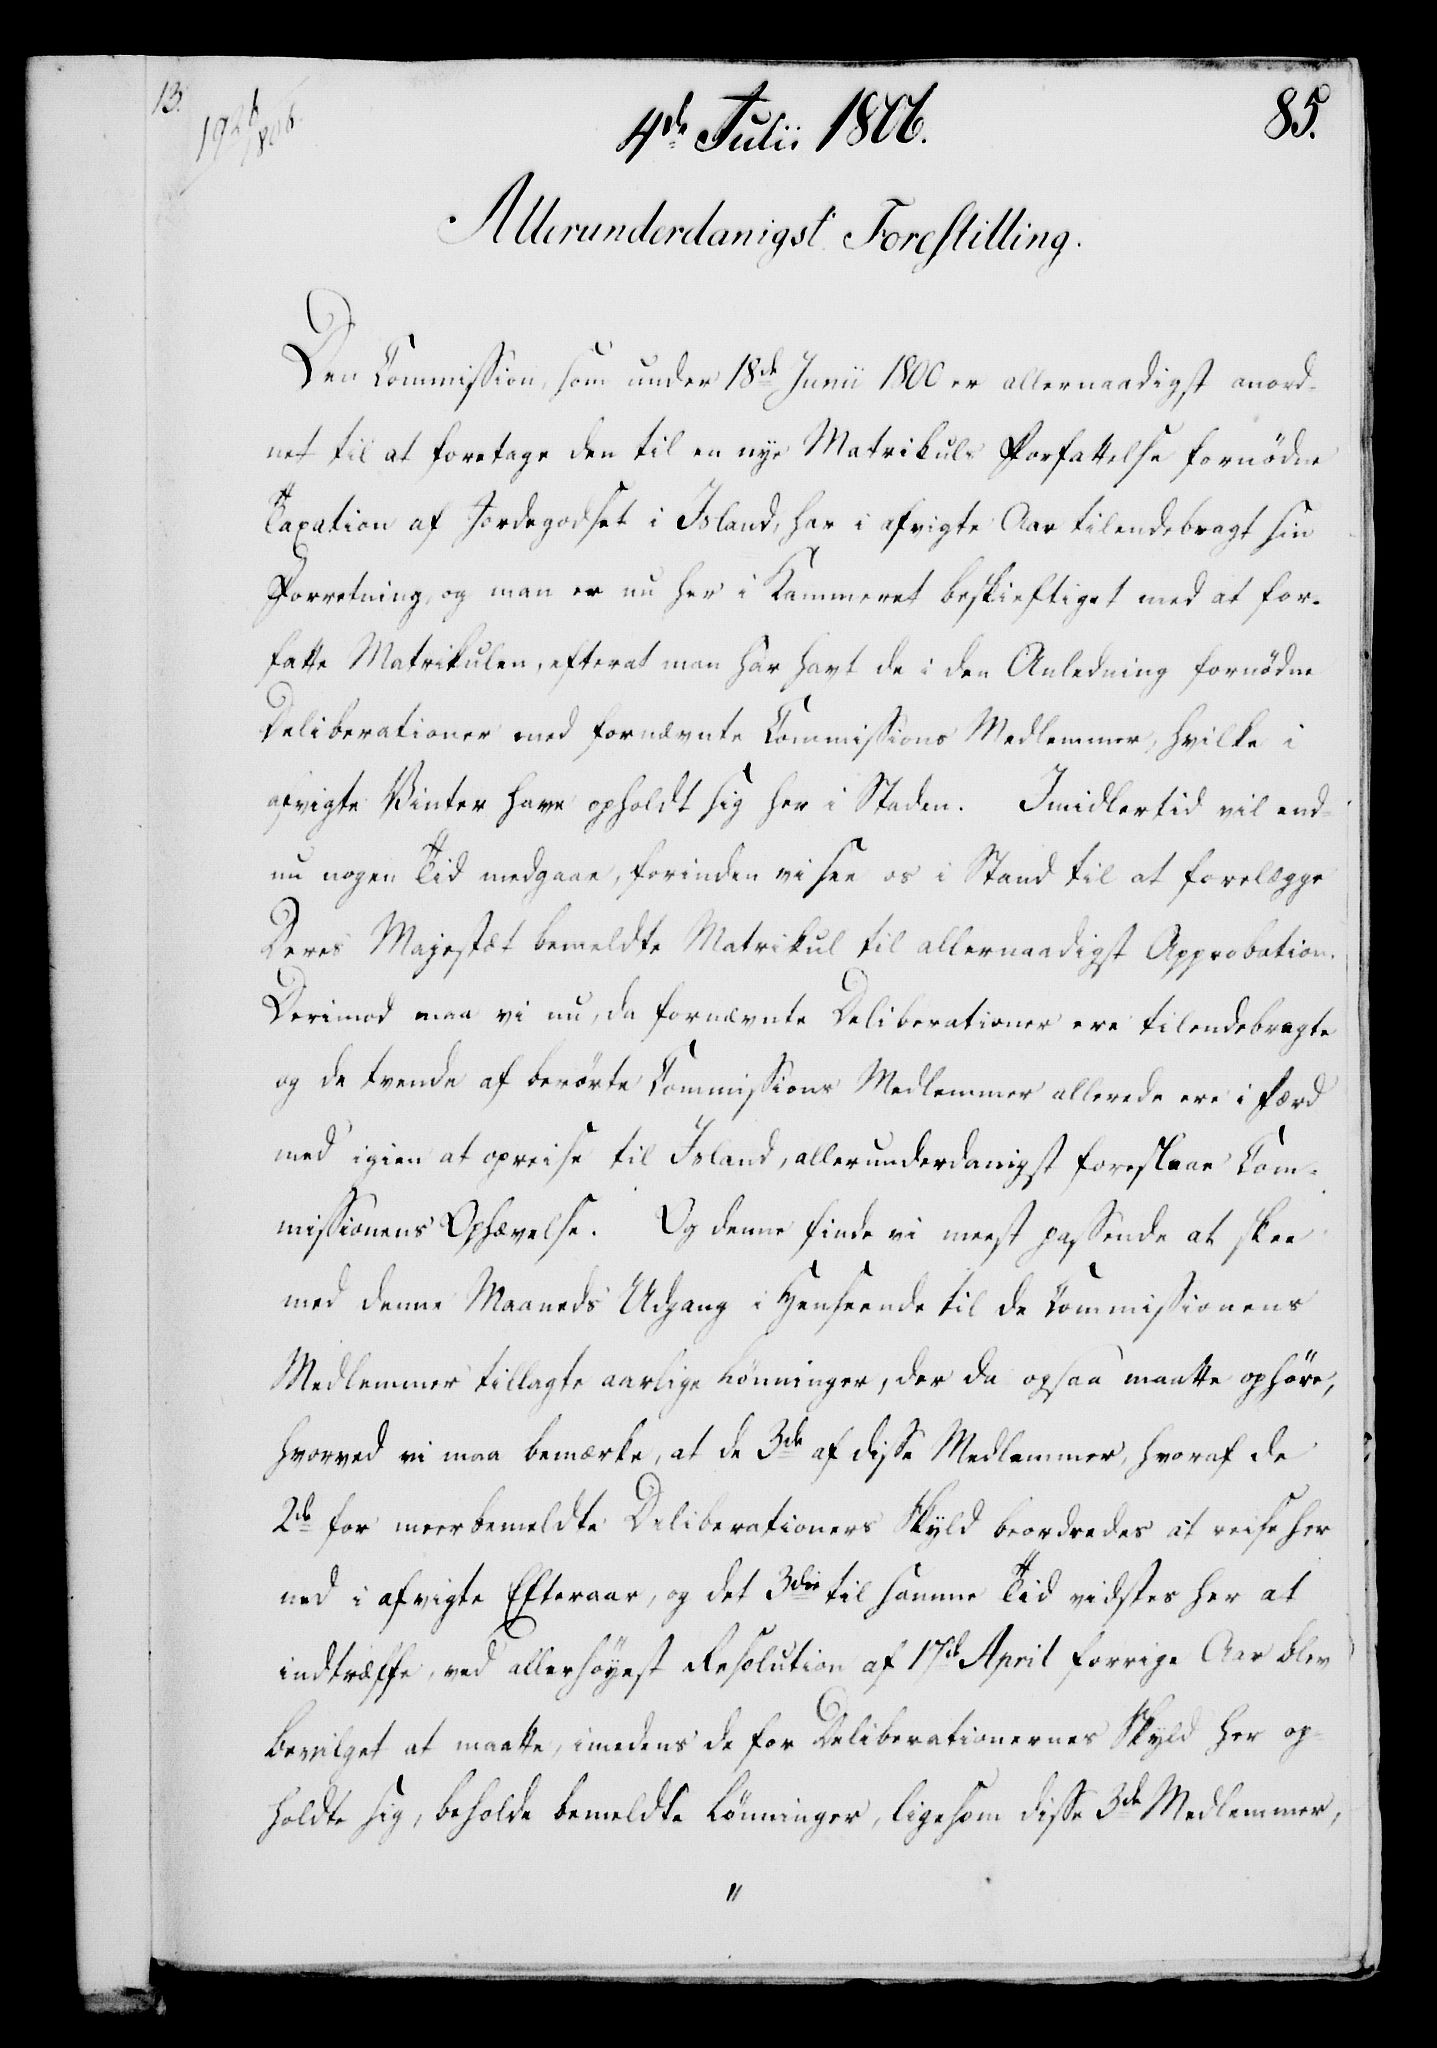 13.
85.
4de Julii 1806.
Allerunderdanigst Forestilling.
Den Commission, som under 18de Junii 1800 er allernaadigst anord-
net til at foretage den til en nye Matrikuls Forfattelse fornödne
Taxation af Jordegodset i Island, har i afvigte Aar tilendebragt sin
Forretning, og man er nu her i Kammeret beskieftiget med at for-
fatte Matrikulen, efterat man har havt de i den Anledning fornödne
Deliberationer med fornævnte Commissions Medlemmer, hvilke i
afvigte Vinter have opholdt sig her i Staden. Imidlertid vil end-
nu nogen Tid medgaae, forinden vi see os i Stand til at forelægge
Deres Majestæt bemeldte Matrikul til allernaadigst Approbation.
Derimod maa vi nu, da fornævnte Deliberationer ere tilendebragte
og de tvende af berörte Commissions Medlemmer allerede ere i færd
med igien at opreise til Island, allerunderdanigst foreslaae Com-
missionens Ophævelse. Og denne finde vi meest passende at skee
med denne Maaneds Udgang i Henseende til de Commissionens
Medlemmer tillagte aarlige Lönninger, der da ogsaa maatte ophöre,
hvorved vi maa bemærke, at de 3de af disse Medlemmer, hvoraf de
2de for meerbemeldte Deliberationers Skyld beordredes at reise her
ned i afvigte Efteraar, og det 3die til samme Tid vidstes her at
indtræffe, ved allerhöyest Resolution af 17de April forrige Aar blev
bevilget at maatte, imedens de for Deliberationernes Skyld her op-
holdte sig, beholde bemeldte Lönninger, ligesom disse 3de Medlemmer,
"